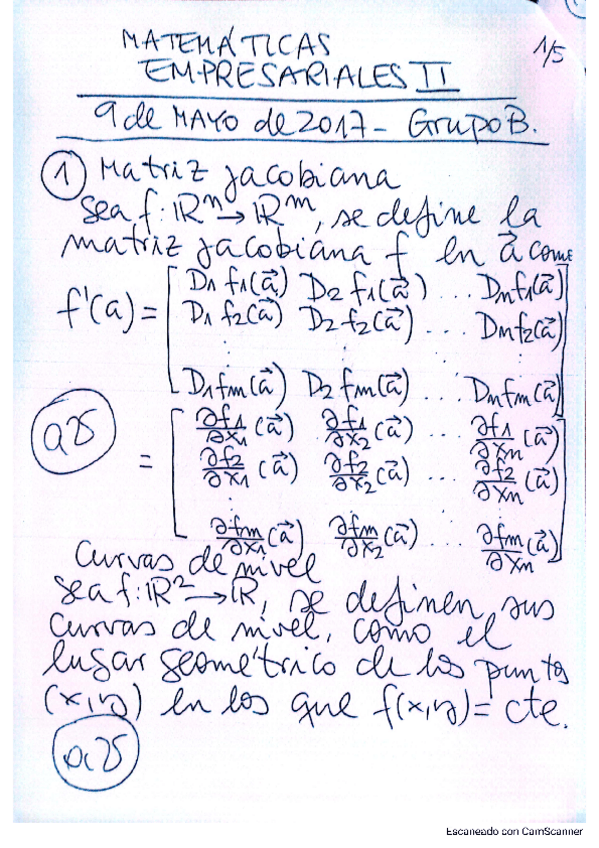 MATEMÁTICAS
EMPRESARIALES II
1/5
9 de MAYO de 2017 - Grupo B.
① Matriz jacobiana
Sea f: ℝⁿ → ℝᵐ, se define la
matriz jacobiana f en a⃗ como
f'(a) = [ D₁ f₁(a⃗) D₂ f₁(a⃗) ... Dₙf₁(a⃗)
D₁ f₂(a⃗) D₂ f₂(a⃗) ... Dₙf₂(a⃗)
⋮ ⋮ ⋮
D₁fₘ(a⃗) D₂ fₘ(a⃗) ... Dₙfₘ(a⃗) ]
0'25
= [ ∂f₁/∂x₁ (a⃗) ∂f₁/∂x₂ (a⃗) ... ∂f₁/∂xₙ (a⃗)
∂f₂/∂x₁ (a⃗) ∂f₂/∂x₂ (a⃗) ... ∂f₂/∂xₙ (a⃗)
⋮
∂fₘ/∂x₁ (a⃗) ∂fₘ/∂x₂ (a⃗) ... ∂fₘ/∂xₙ (a⃗) ]
Curvas de nivel
Sea f: ℝ² → ℝ, se definen sus
curvas de nivel, como el
lugar geométrico de los puntos
(x,y) en los que f(x,y) = cte.
0'25
Escaneado con CamScanner